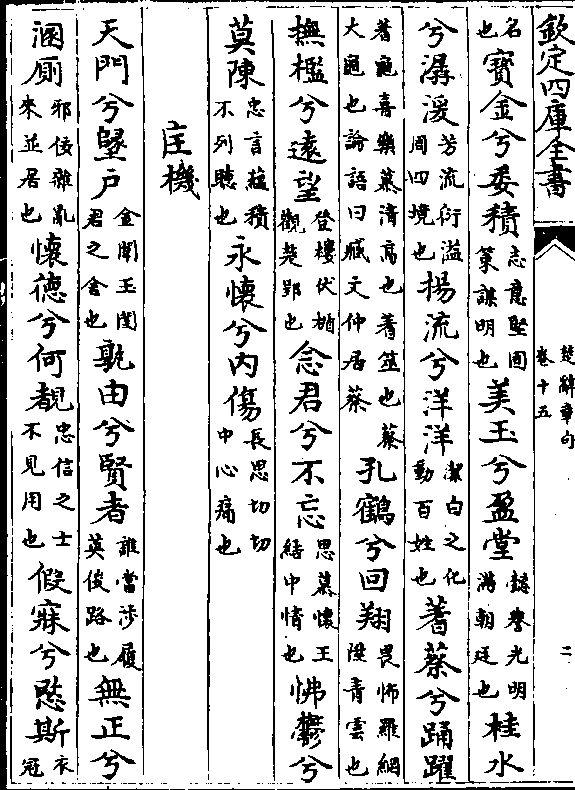 欽定四庫全書
楚辭章句
卷十五
二
名也寳金兮委積志意堅固策謀明也美玉兮盈堂懿譽光明滿朝廷也桂水
兮潺湲芳流衍溢周四境也揚流兮洋洋潔白之化動百姓也蓍蔡兮踊躍
蓍龜喜樂慕清高也蓍筮也蔡大龜也論語曰臧文仲居蔡孔鶴兮回翔畏怖羅網陞青雲也
撫檻兮遠望登樓伏楯觀楚郢也念君兮不忘思慕懷王結中情也怫鬱兮
莫陳忠言蘊積不列聽也永懷兮内傷長思切切中心痛也
匡機
天門兮墬户金闈玉闺君之舍也孰由兮賢者誰當涉履英俊路也無正兮
溷厠邪佞雜亂來並居也懷德兮何覩忠信之士不見用也假寐兮愍斯衣冠